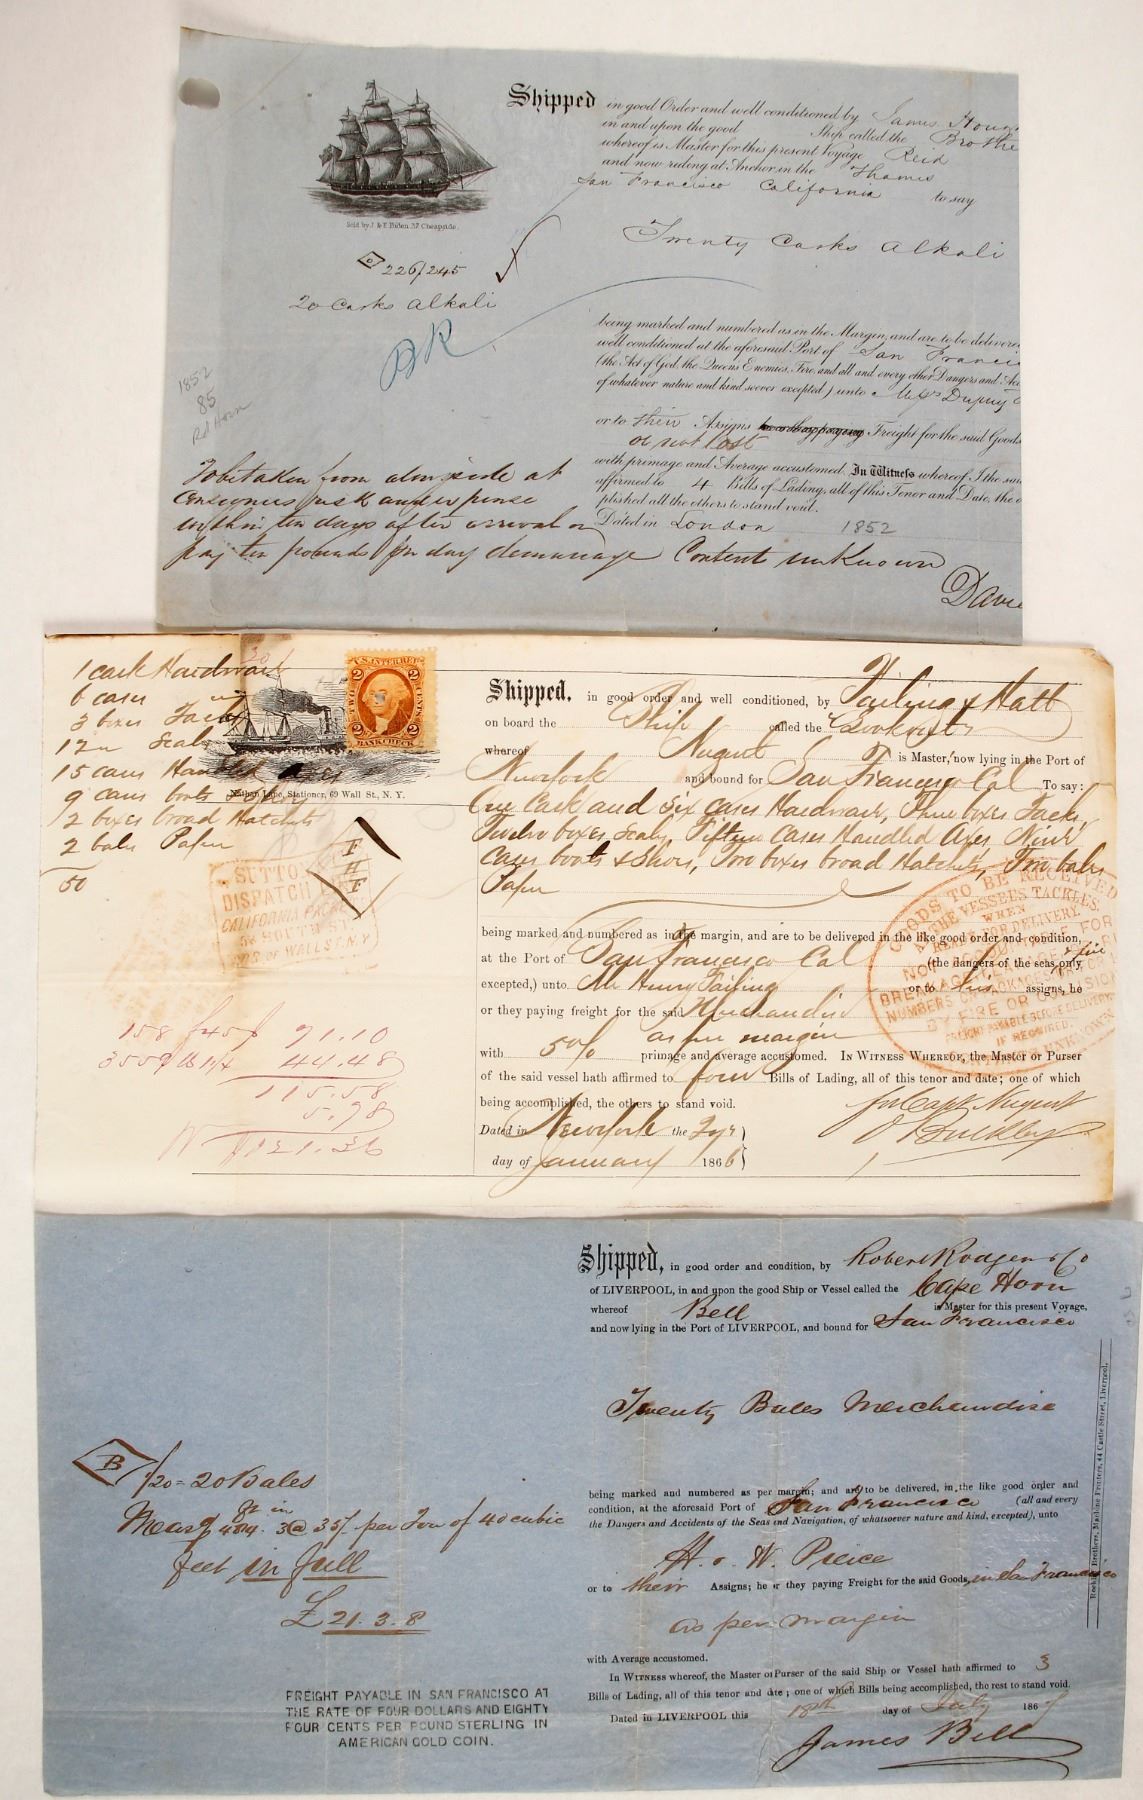 Shipped in good Order and well conditioned by James
in and upon the good Ship called the Brothe
whereof is Master for this present Voyage Reid
and now riding at Anchor in the Thames
San Francisco California to say
Sold by J. & E. Biden 37 Cheapside.
Twenty Casks Alkali
226/245
20 Casks Alkali
being marked and numbered as in the Margin, and are to be delivere
well conditioned at the aforesaid Port of San Franci
(the Act of God, the Queens Enemies, Fire, and all and every other Dangers and Ac
of whatever nature and kind soever excepted) unto Mess Dupuy
1852
85
Rd Horn
or to their Assigns Freight for the said Goods
or not lost
with primage and Average accustomed. In Witness whereof I the sai
affirmed to 4 Bills of Lading, all of this Tenor and Date, the o
plished all the others to stand void.
Dated in London 1852
To be taken from alongside at
Consignees risk and expense
within ten days after arrival or
pay ten pounds per day demurrage Contents unknown
Davi
1 cask Hardware
6 cases
3 boxes Tacks
12 " Scales
15 cases Handled Axes
9 cases boots & Shoes
2 boxes broad Hatchets
2 bales Paper
50
U.S. INTER. REV.
2 2
TWO CENTS
2 2
BANK CHECK
Nathan Lane, Stationer, 69 Wall St., N. Y.
Shipped, in good order and well conditioned, by
on board the Ship called the
whereof Nugent is Master, now lying in the Port of
New York and bound for San Francisco Cal To say:
One Cask and Six Cases Hardware, Three boxes Tacks,
Twelve boxes Scales, Fifteen Cases Handled Axes Nine
Cases boots & Shoes, Two boxes broad Hatchets, Two bales
Paper
SUTTON
DISPATCH LINE
CALIFORNIA PACKETS
58 SOUTH ST.
COR OF WALL ST. N.Y
being marked and numbered as in the margin, and are to be delivered in the like good order and condition,
at the Port of San Francisco Cal (the dangers of the seas only & fire
excepted,) unto Mr Henry or to his assigns, he
or they paying freight for the said Merchandise
as per margin
with 5% primage and average accustomed. In Witness Whereof, the Master or Purser
of the said vessel hath affirmed to four Bills of Lading, all of this tenor and date; one of which
being accomplished, the others to stand void.
Dated in New York the
day of January 1866
for Capt Nugent
GOODS TO BE RECEIVED
AT THE VESSELS TACKLES,
WHEN
READY FOR DELIVERY.
158
3559 lb 1¼ 44.48
115.58
5.78
121.36
Shipped, in good order and condition, by Robert Rodgers & Co
of LIVERPOOL, in and upon the good Ship or Vessel called the Cape Horn
whereof Bell is Master for this present Voyage,
and now lying in the Port of LIVERPOOL, and bound for San Francisco
Twenty Bales Merchandise
B
1/20 = 20 Bales
Measg 484. 3 @ 35/ per Ton of 40 cubic
feet in full
£21.3.8
being marked and numbered as per margin; and are to be delivered, in the like good order and
condition, at the aforesaid Port of San Francisco (all and every
the Dangers and Accidents of the Seas and Navigation, of whatsoever nature and kind, excepted), unto
H. & W. Pierce
or to their Assigns; he or they paying Freight for the said Goods, in San Francisco
as per margin
with Average accustomed.
In Witness whereof, the Master or Purser of the said Ship or Vessel hath affirmed to 3
Bills of Lading, all of this tenor and date; one of which Bills being accomplished, the rest to stand void.
Dated in LIVERPOOL this 18th day of July 186
James Bell
FREIGHT PAYABLE IN SAN FRANCISCO AT
THE RATE OF FOUR DOLLARS AND EIGHTY
FOUR CENTS PER POUND STERLING IN
AMERICAN GOLD COIN.
Brothers, Machine Printers, 44 Castle Street, Liverpool.